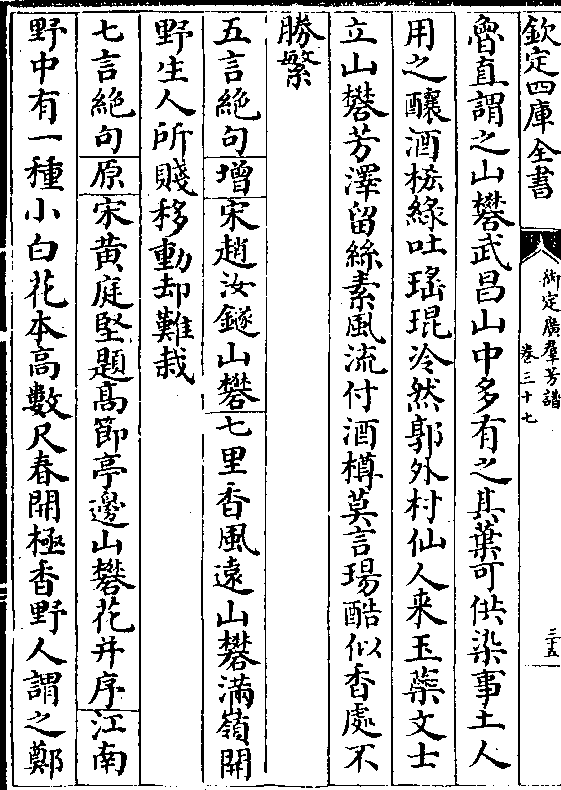 欽定四庫全書
御定廣羣芳譜
卷三十七
三五
魯直謂之山礬武昌山中多有之其葉可供染事土人
用之釀酒栋綠吐瑤琨冷然郭外村仙人来玉蘂文士
立山礬芳澤留絲素風流付酒樽莫言瑒酷似香處不
勝繁
五言絶句增宋趙汝鐩山礬七里香風遠山礬滿嶺開
野生人所賤移動却難栽
七言絶句原宋黄庭堅題高節亭邊山礬花并序江南
野中有一種小白花本高數尺春開極香野人謂之鄭